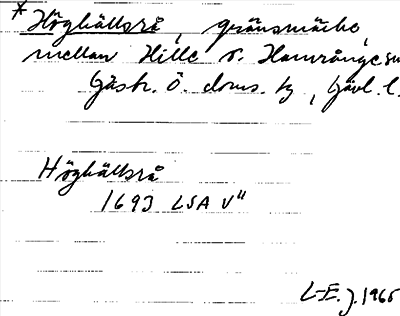 * Höghällsrå, gränsmärke,
mellan Hille o. Hamrånge sn
Gästr. Ö. doms. hg, Gävl. l.
Höghällsrå
1693 LSA V"
L-E. J. 1965